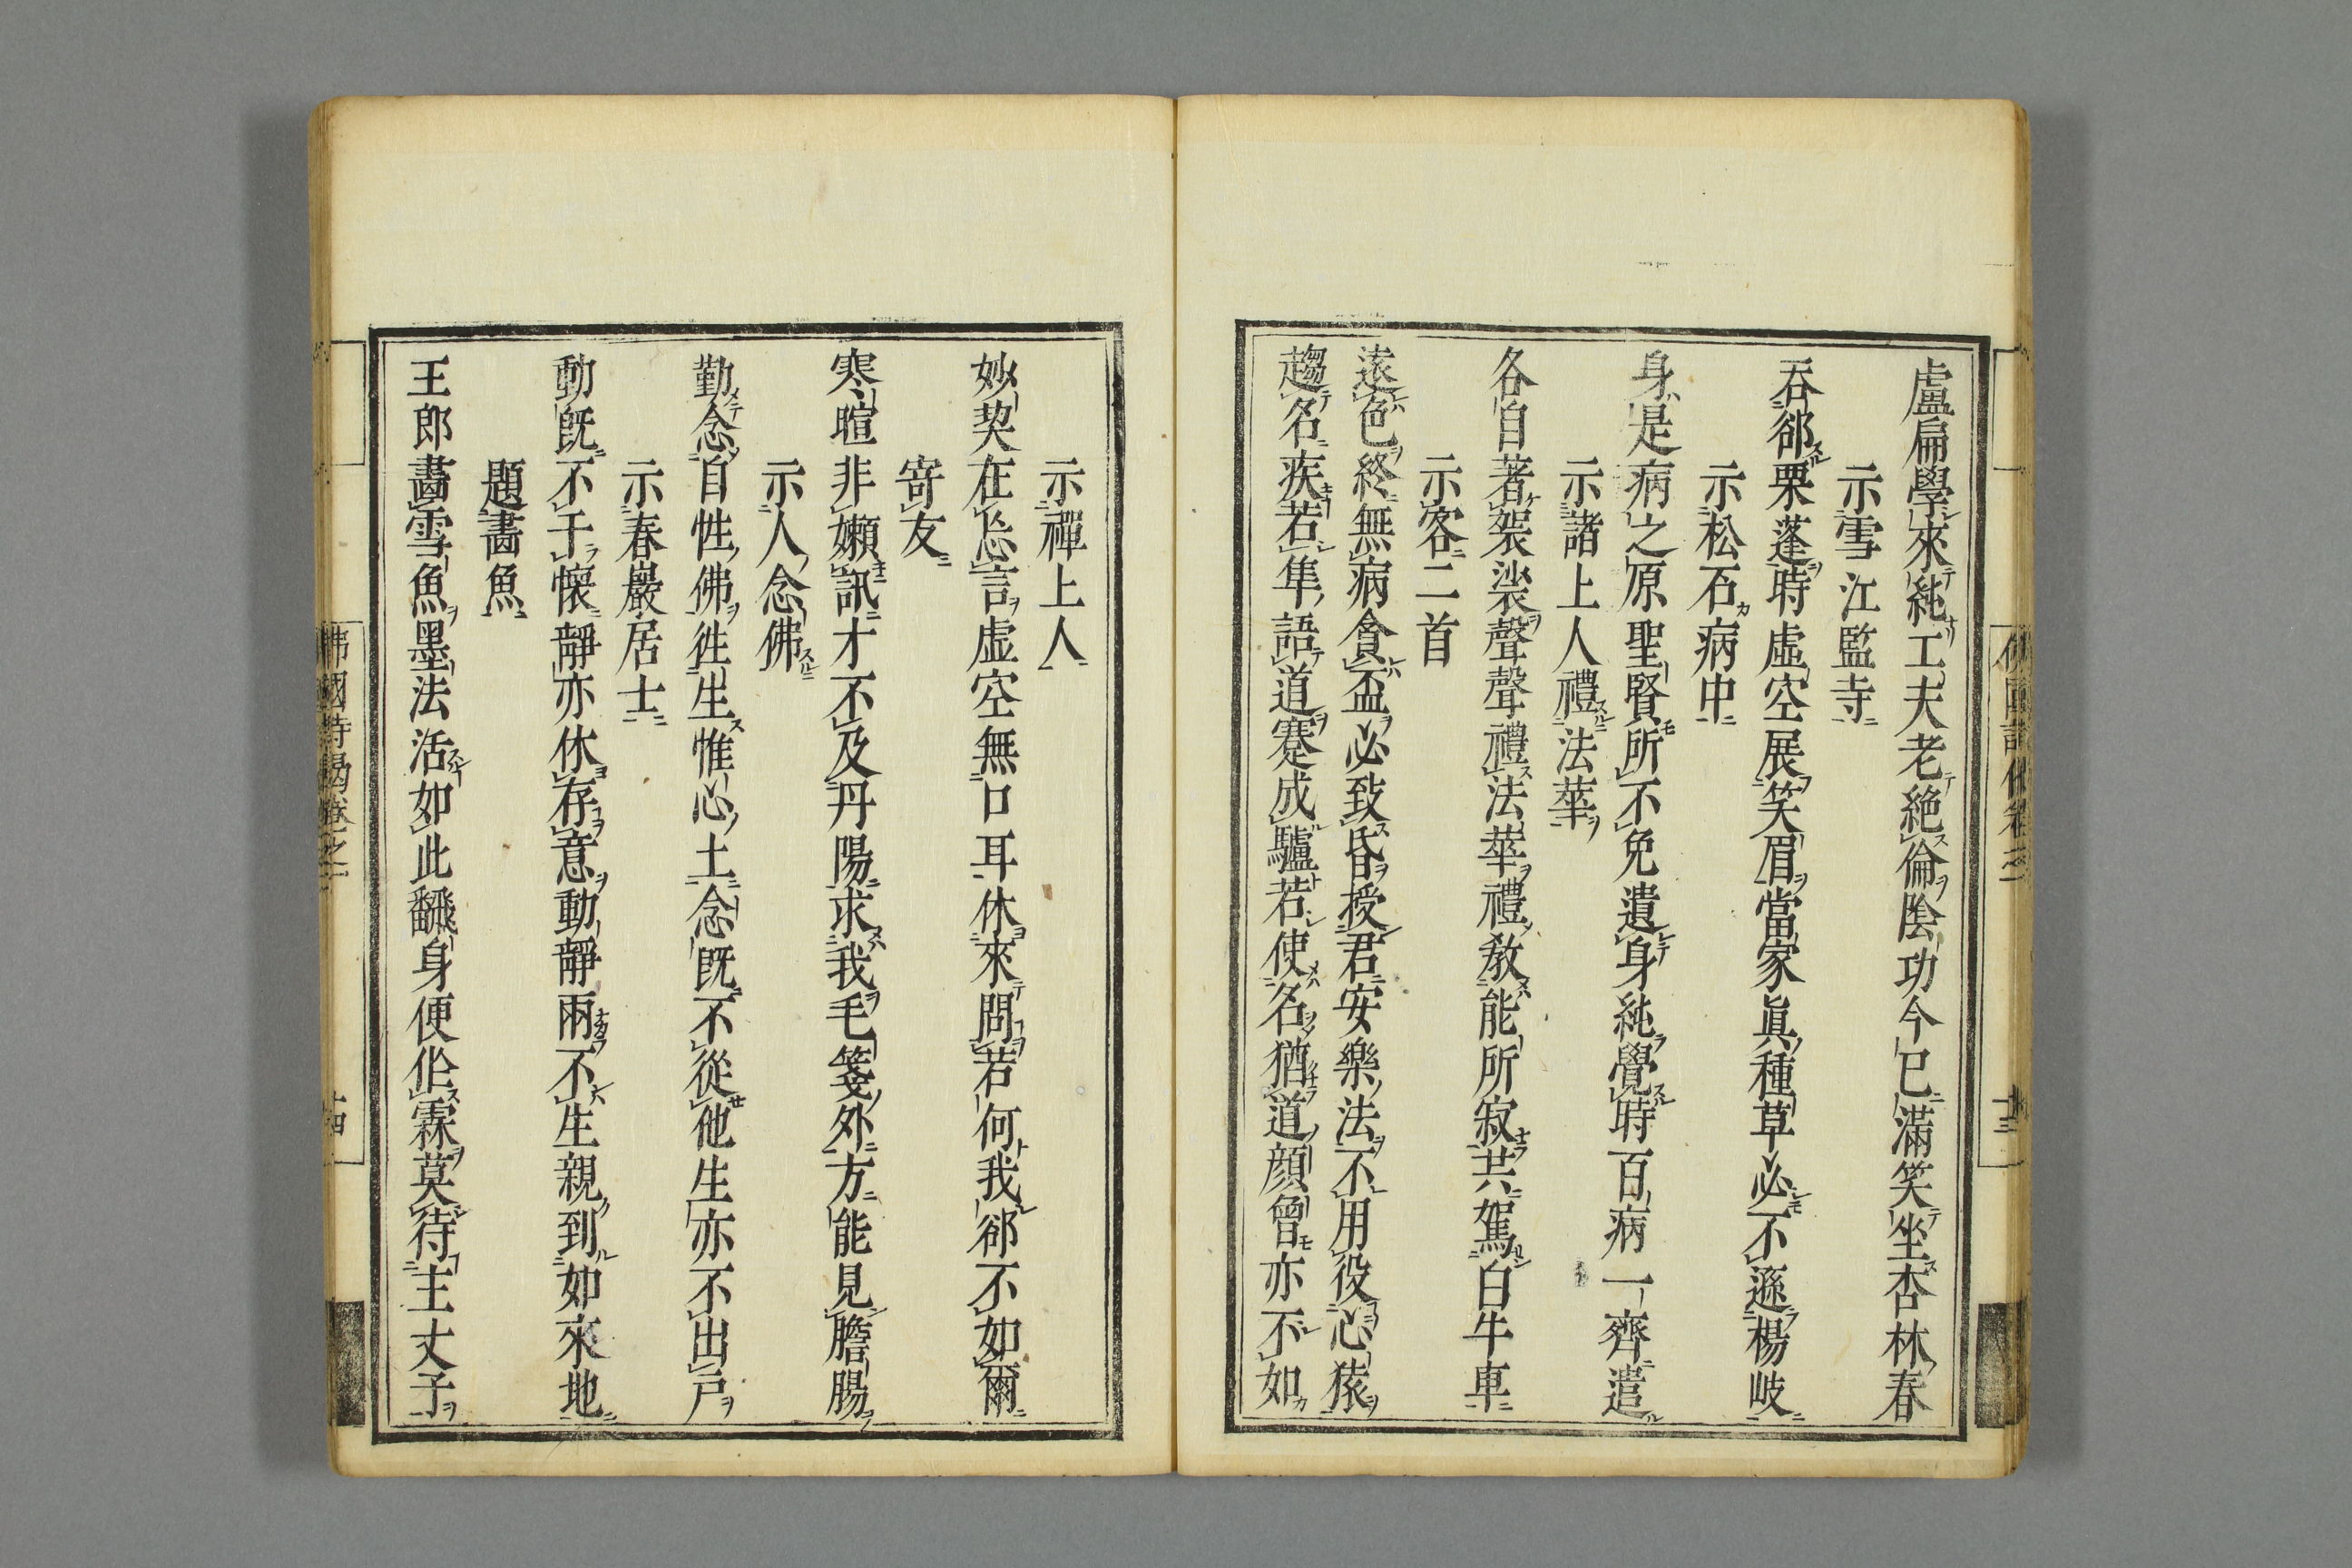 盧扁學來純工夫老絶倫陰功今已滿笑坐杏林春
示雪江監寺
吞郤栗蓬時虛空展笑眉當家眞種草必不遜楊岐
示松石病中
身是病之原聖賢所不免遺身純覺時百病一齊遣
示諸上人禮法華
各自著袈裟聲聲禮法華禮教能所寂共駕白牛車
示客二首
遠色終無病貪盃必致昏授君安樂法不用役心猿
趨名疾若隼語道蹇成驢若使名猶道顔曾亦不如
示禪上人
妙契在忘言虛空無口耳休來問若何我郤不如爾
寄友
寒暄非嬾訊才不及丹陽求我毛箋外方能見膽腸
示人念佛
勤念自性佛徃生惟心土念既不從他生亦不出戸
示春巖居士
動既不干懷靜亦休存意動靜兩不生親到如來地
題畫魚
王郎畫雪魚墨法活如此飜身便作霖莫待王丈予
佛國詩偈卷之二
十四